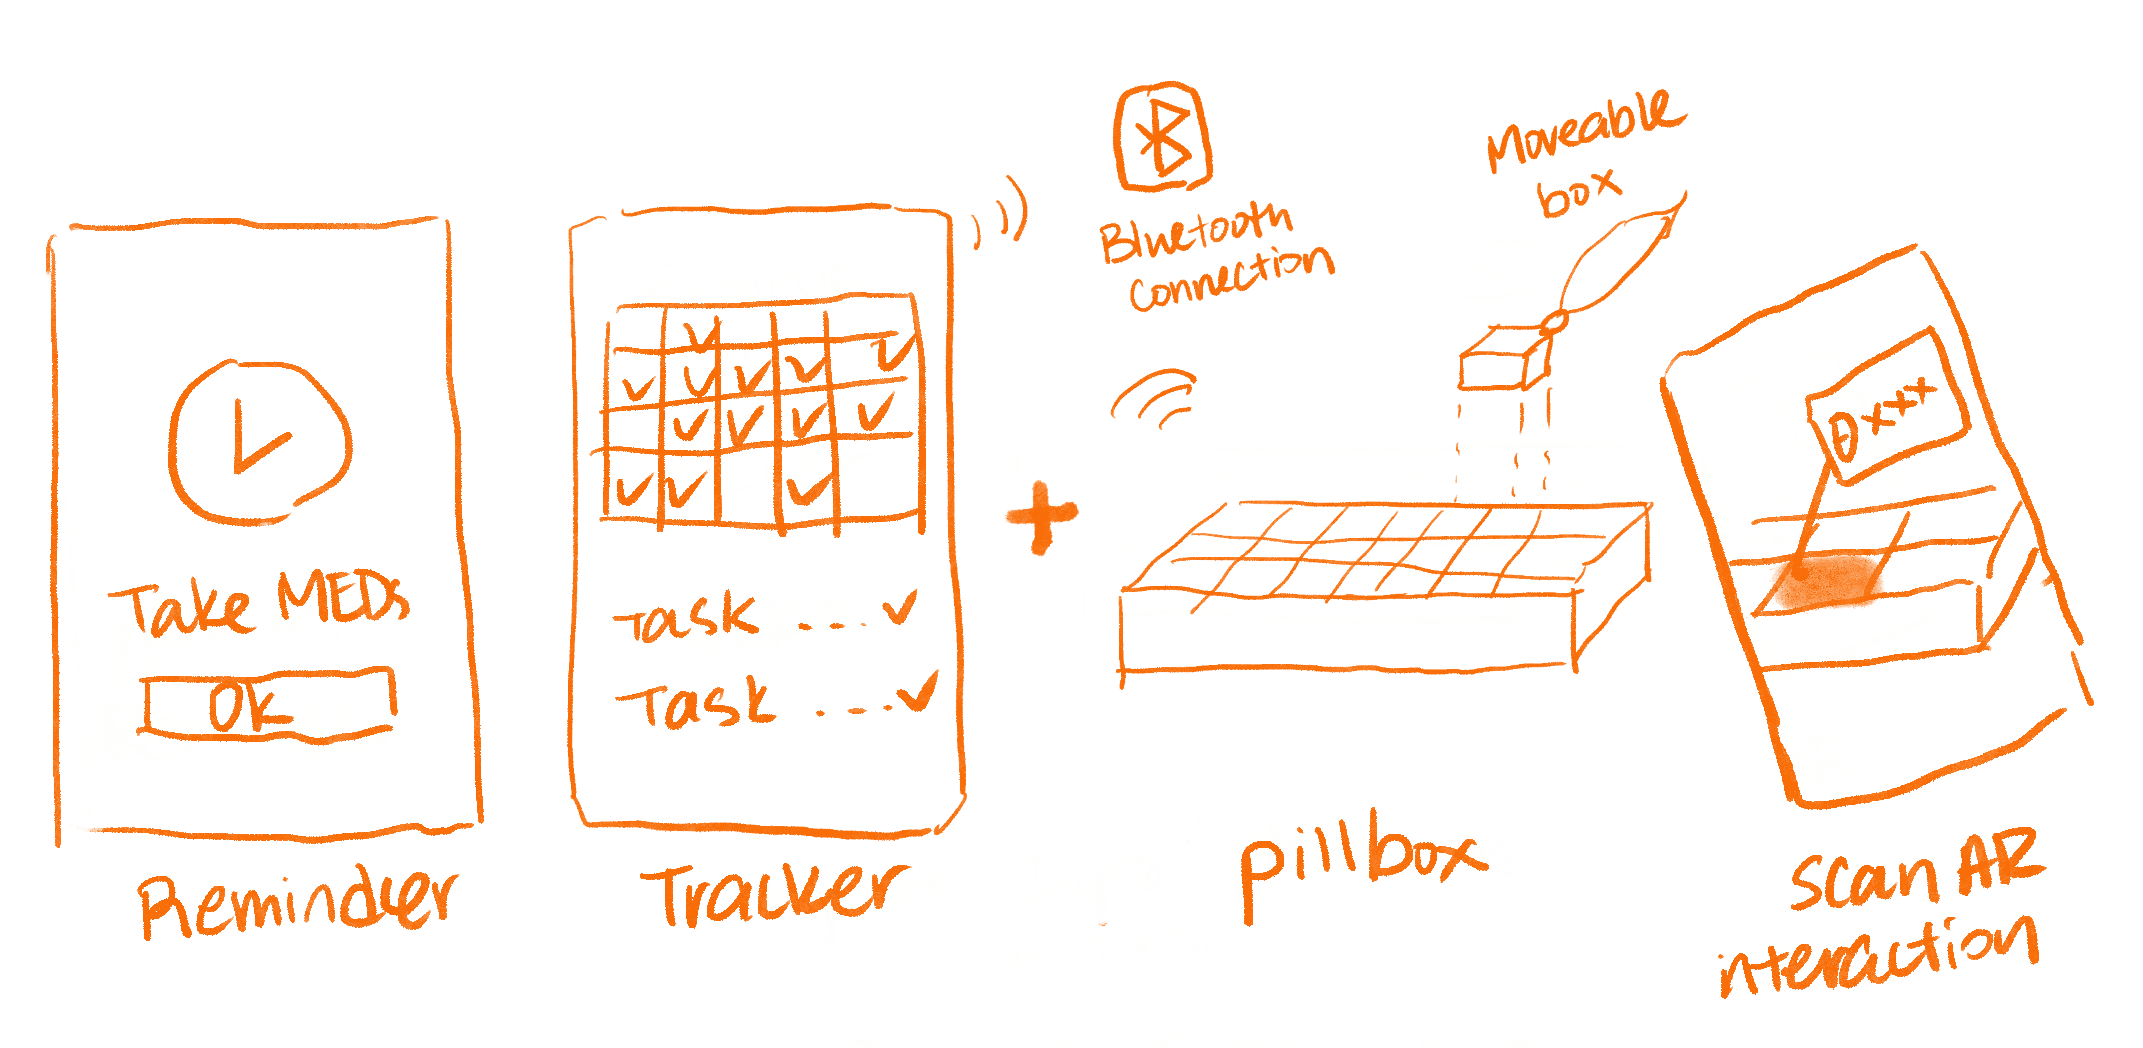 Take MEDs
Ok
Reminder
Task ... ✓
Task ... ✓
Tracker
+
Bluetooth
connection
Moveable
box
pillbox
θ×××
scan AR
interaction